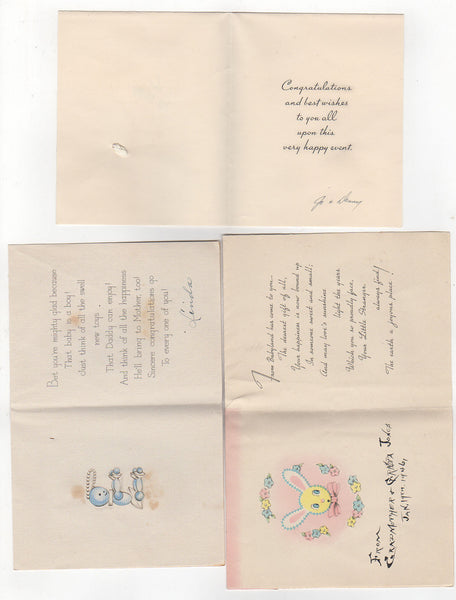 Congratulations
and best wishes
to you all
upon this
very happy event.
Jo &
Bet you're mighty glad because
That baby is a boy!
Just think of all the swell
new toys
That Daddy can enjoy!
And think of all the happiness
He'll bring to Mother, too,
Sincere congratulations go
To every one of you!
Linda
From Babyland has come to you—
The dearest gift of all,
Your happiness is now bound up
In someone sweet and small;
And may love's sunshine
light the years
Which you so proudly face,
Your Little Stranger
always find
The earth a joyous place!
FROM
GRANDMOTHER & GRANDPA JONES
JAN. 19TH, 1946,